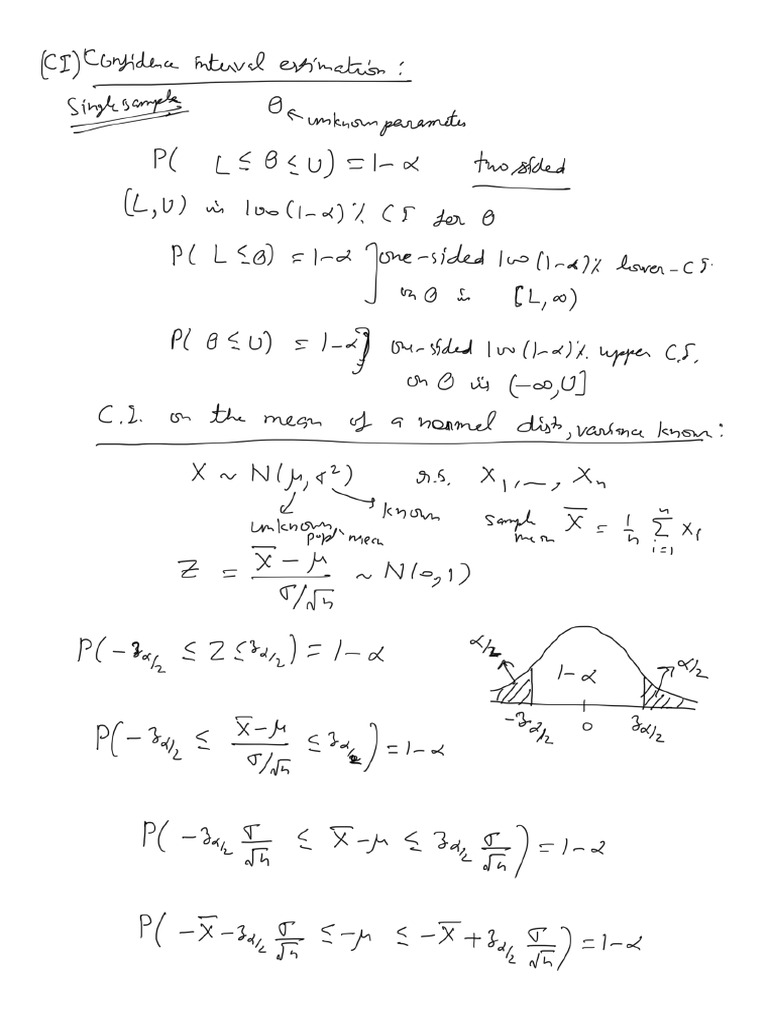 (CI) Confidence interval estimation:
Single sample
θ ← unknown parameter
P( L ≤ θ ≤ U) = 1-α two sided
(L,U) is 100(1-α)% CI for θ
P( L ≤ θ) = 1-α } one-sided 100(1-α)% lower-CI.
on θ is [L,∞)
P( θ ≤ U) = 1-α } one-sided 100(1-α)% upper C.I.
on θ is (-∞,U]
C.I. on the mean of a normal dist, variance known:
X ~ N(μ,σ²) r.s. X₁,—, Xₙ
known
unknown popl. mean
sample mean X̄ = 1/n Σ_{i=1}^{n} Xᵢ
Z = (X̄ - μ)/(σ/√n) ~ N(0,1)
P(-z_{α/2} ≤ Z ≤ z_{α/2}) = 1-α
α/2 1-α α/2
-z_{α/2} 0 z_{α/2}
P(-z_{α/2} ≤ (X̄-μ)/(σ/√n) ≤ z_{α/2}) = 1-α
P(-z_{α/2} σ/√n ≤ X̄-μ ≤ z_{α/2} σ/√n) = 1-α
P(-X̄-z_{α/2} σ/√n ≤ -μ ≤ -X̄+z_{α/2} σ/√n) = 1-α